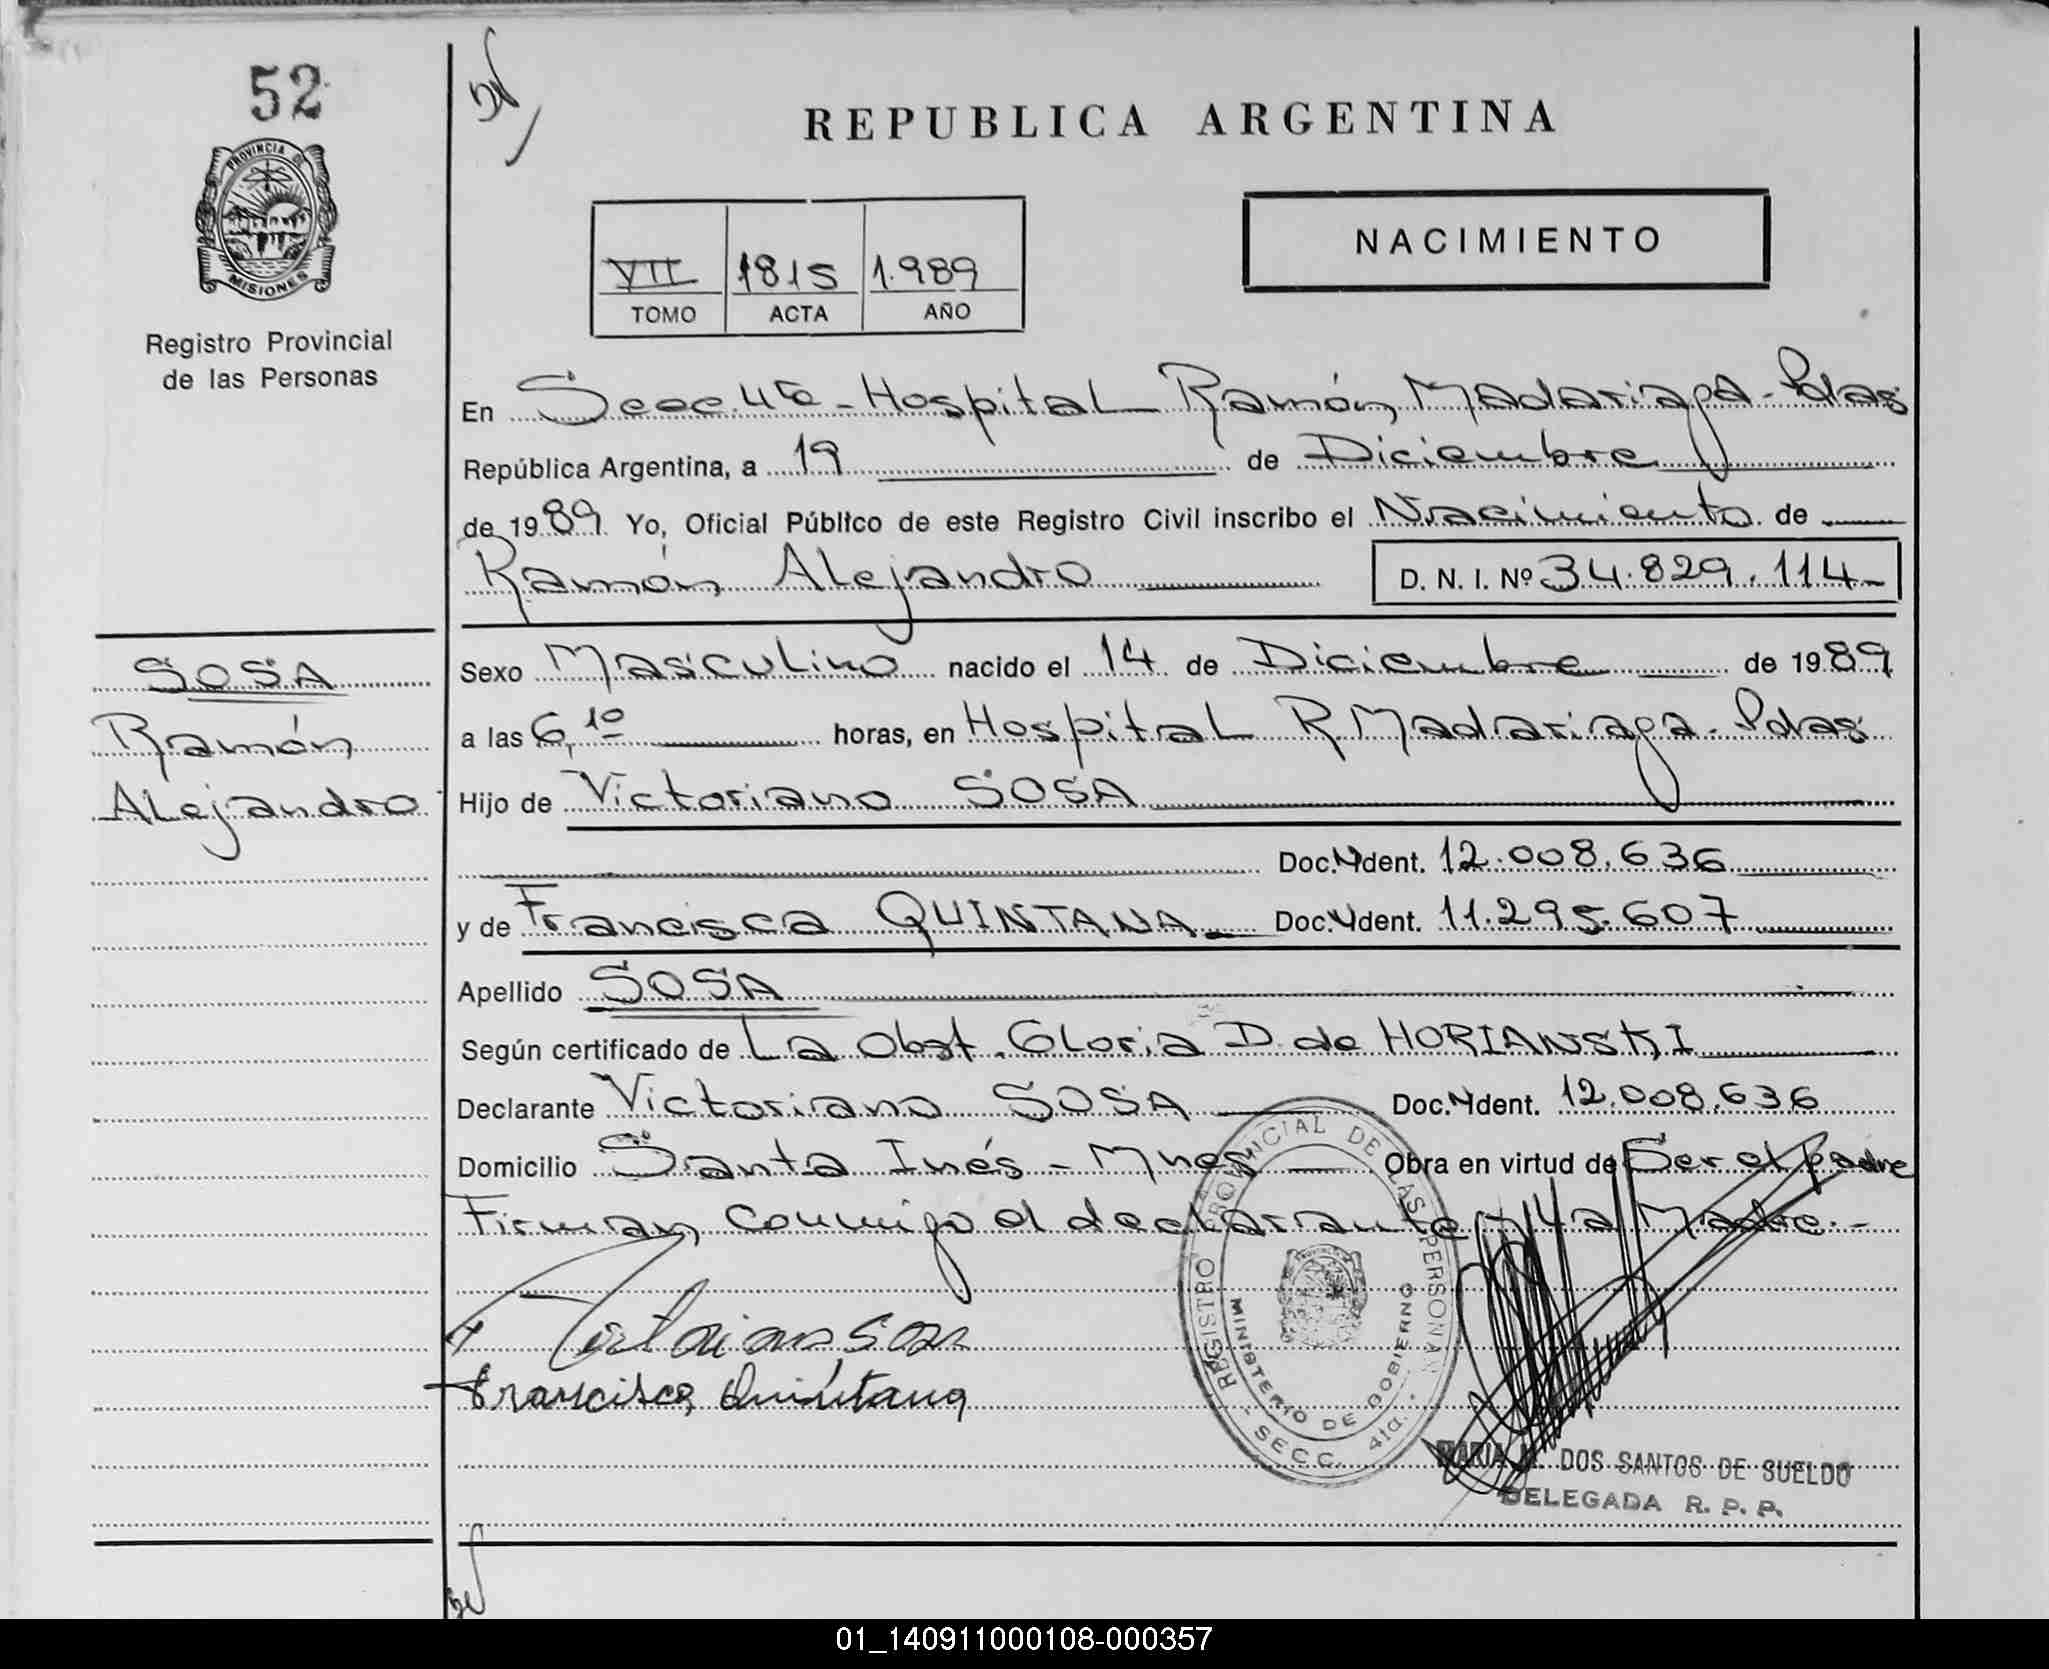 52
PROVINCIA DE
MISIONES
Registro Provincial
de las Personas
REPUBLICA ARGENTINA
NACIMIENTO
VII 1815 1.989
TOMO ACTA AÑO
En Secc. 4ta - Hospital Ramón Madariaga - Pdas
República Argentina, a 19 de Diciembre
de 1989 Yo, Oficial Público de este Registro Civil inscribo el Nacimiento de
Ramón Alejandro D. N. I. Nº 34.829.114-
SOSA
Ramón
Alejandro
Sexo Masculino nacido el 14 de Diciembre de 1989
a las 6,10 horas, en Hospital R Madariaga - Pdas
Hijo de Victoriano SOSA
Doc. Ndent. 12.008.636
y de Francisca QUINTANA Doc. Ndent. 11.295.607
Apellido SOSA
Según certificado de La Obst. Gloria D. de HORIANSKI
Declarante Victoriano SOSA Doc. Ndent. 12.008.636
Domicilio Santa Inés - Mnes Obra en virtud de Ser el padre
Firman conmigo el declarante y la Madre.-
Victoriano Sosa
Francisca Quintana
REGISTRO PROVINCIAL DE LAS PERSONAS
MINISTERIO DE GOBIERNO
- SECC. 4ta. -
MARIA DOS SANTOS DE SUELDO
DELEGADA R. P. P.
01_140911000108-000357